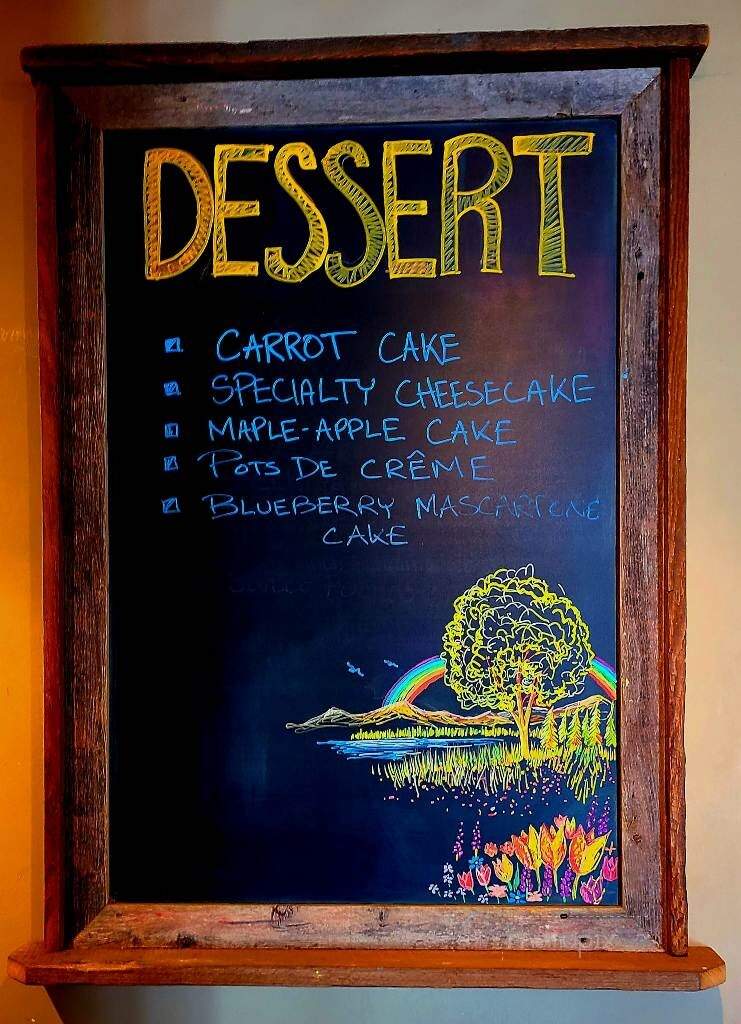 DESSERT
CARROT CAKE
SPECIALTY CHEESECAKE
MAPLE-APPLE CAKE
POTS DE CRÊME
BLUEBERRY MASCARPONE
CAKE